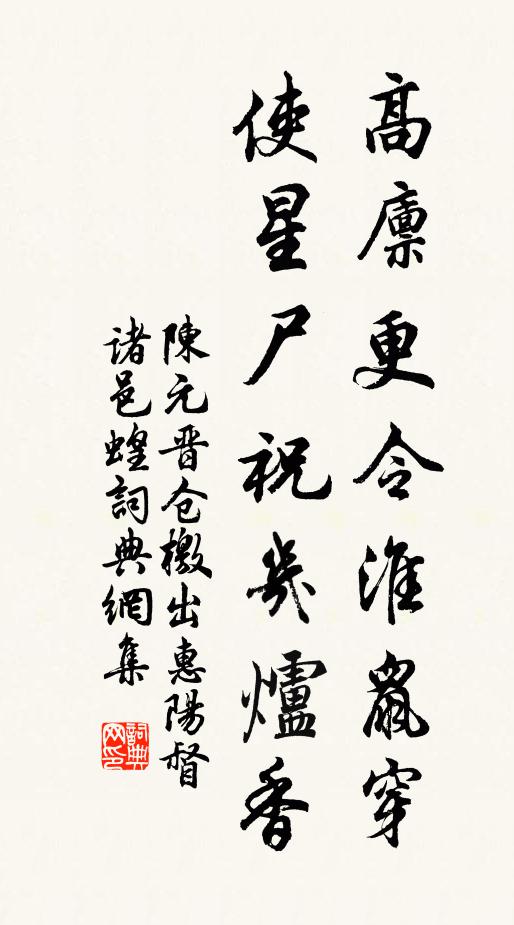 高廪更令淮鼠穿
使星尸祝幾爐香
陳元晋仓檄出惠陽督
诸邑蝗詞典網集
詞典网印